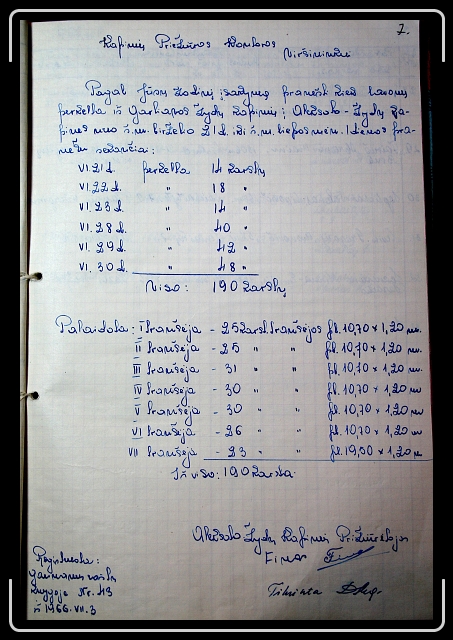 7.
Kapinių Priežiūros Kontoros
Viršininkui
Pagal Jūsų žodinį įsakymą pranešti kiek karstų
perkelta iš Žydų kapinių į Žydų ka-
pines nuo š.m. birželio 21 d. iki š.m. liepos mėn. 1 dienos pra-
nešu sekančiai:
VI. 21 d. perkelta 14 karstų
VI. 22 d. " 18 "
VI. 23 d. " 14 "
VI. 28 d. " 40 "
VI. 29 d. " 42 "
VI. 30 d. " 48 "
Viso: 190 karstų
Palaidota: I tranšėja - 25 karst. tranšėjos pl. 10,70 x 1,20 m.
II tranšėja - 25 " " pl. 10,70 x 1,20 m.
III tranšėja - 31 " " pl. 10,70 x 1,20 m.
IV tranšėja - 30 " " pl. 10,70 x 1,20 m
V tranšėja - 30 " " pl. 10,70 x 1,20 m
VI tranšėja - 26 " " pl. 10,70 x 1,20 m
VII tranšėja - 23 " " pl. 19,50 x 1,20 m
Iš viso: 190 karstų.
Žydų Kapinių Prižiūrėtojas
Tikrinta
Registruota:
gaunamų raštų
knygoje Nr. 43
š 1966. VII. 3